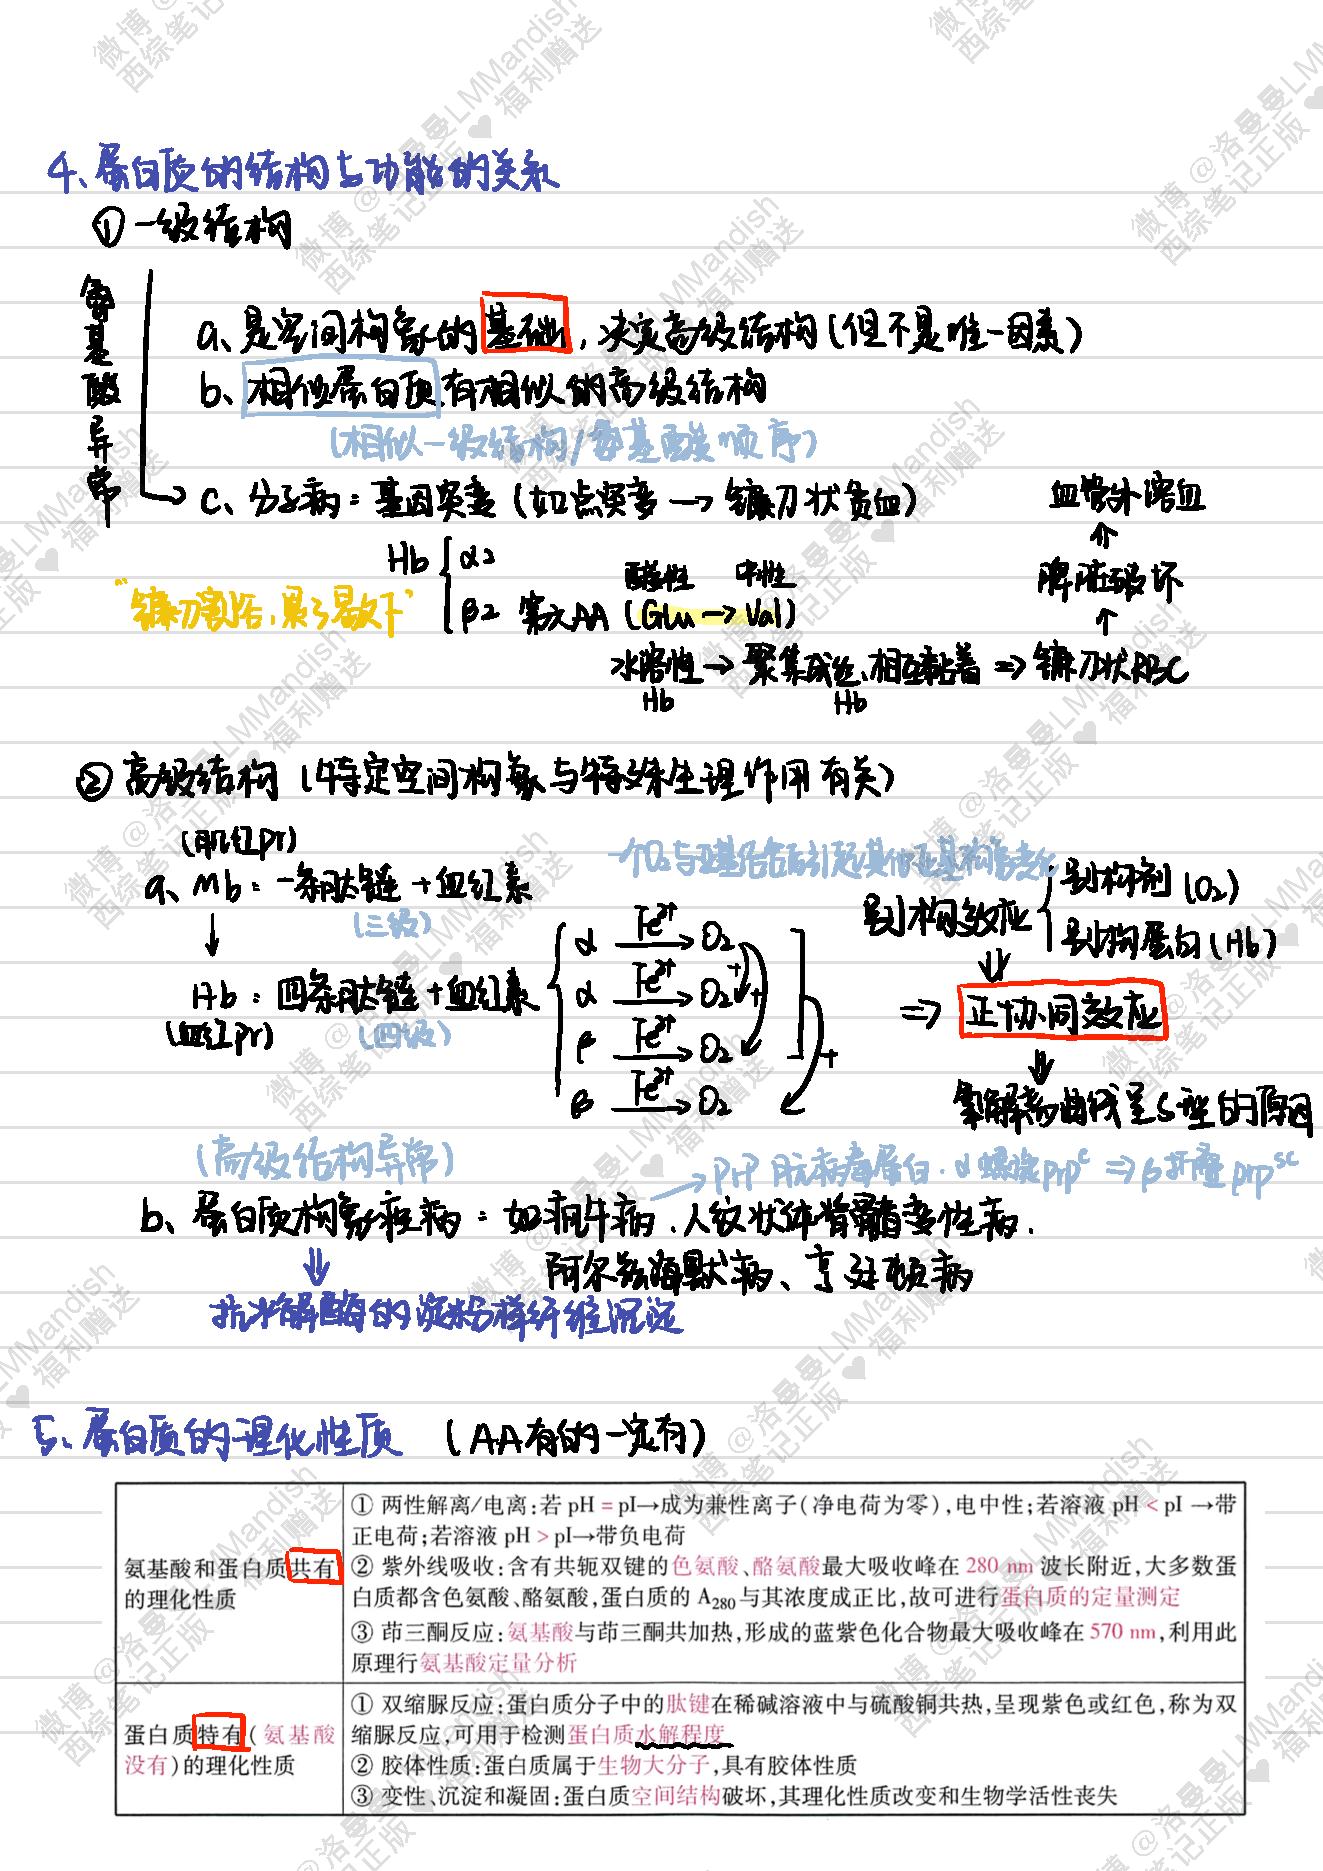 4、蛋白质的结构与功能的关系
①一级结构
氨基酸异常
a、是空间构象的基础,决定高级结构(但不是唯一因素)
b、相似蛋白质有相似的高级结构
(相似一级结构/氨基酸顺序)
c、分子病:基因突变(如点突变→镰刀状贫血)
血管外溶血
↑
脾脏破坏
↑
Hb
α2
β2 第六AA (Glu→Val)
酸性 中性
"镰刀割谷,累了歇下"
水溶性→聚集成丝、相互黏着⇒镰刀状RBC
Hb Hb
②高级结构(特定空间构象与特殊生理作用有关)
(肌红pr)
a、Mb:一条肽链+血红素
(三级)
↓
Hb:四条肽链+血红素
(血红pr) (四级)
α Fe2+→ O2
α Fe2+→ O2
β Fe2+→ O2
β Fe2+→ O2
+ + +
一个O2与亚基结合后引起其他亚基构象变化
别构效应
别构剂(O2)
别构蛋白(Hb)
⇒ 正协同效应
氧解离曲线呈S型的原因
(高级结构异常)
→PrP 朊病毒蛋白.α螺旋prpᶜ⇒β折叠prpˢᶜ
b、蛋白质构象疾病:如疯牛病.人纹状体脊髓变性病.
阿尔兹海默病、亨廷顿病
抗水解酶的淀粉样纤维沉淀
5、蛋白质的理化性质 (AA有的一定有)
氨基酸和蛋白质共有的理化性质
① 两性解离/电离:若 pH = pI→成为兼性离子(净电荷为零),电中性;若溶液 pH < pI →带
正电荷;若溶液 pH > pI→带负电荷
② 紫外线吸收:含有共轭双键的色氨酸、酪氨酸最大吸收峰在 280 nm 波长附近,大多数蛋
白质都含色氨酸、酪氨酸,蛋白质的 A280与其浓度成正比,故可进行蛋白质的定量测定
③ 茚三酮反应:氨基酸与茚三酮共加热,形成的蓝紫色化合物最大吸收峰在 570 nm,利用此
原理行氨基酸定量分析
蛋白质特有(氨基酸没有)的理化性质
① 双缩脲反应:蛋白质分子中的肽键在稀碱溶液中与硫酸铜共热,呈现紫色或红色,称为双
缩脲反应,可用于检测蛋白质水解程度
② 胶体性质:蛋白质属于生物大分子,具有胶体性质
③ 变性、沉淀和凝固:蛋白质空间结构破坏,其理化性质改变和生物学活性丧失
微博@洛曼曼LMMandish
西综笔记正版♥福利赠送